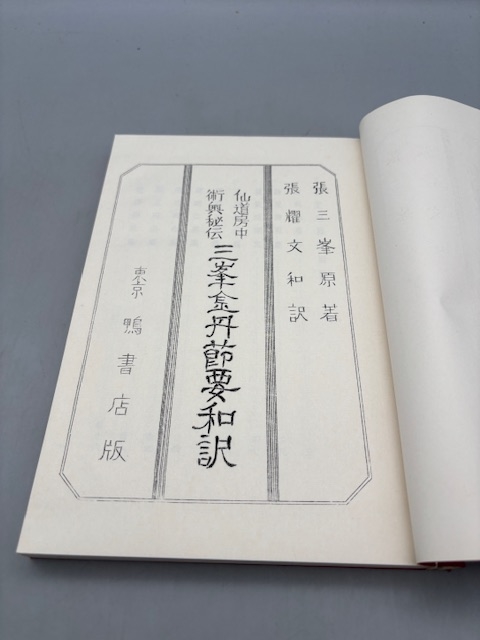 張三峯原著
張耀文和訳
仙道房中
術奥秘伝
三峯金丹節要和訳
東京鴨書店版